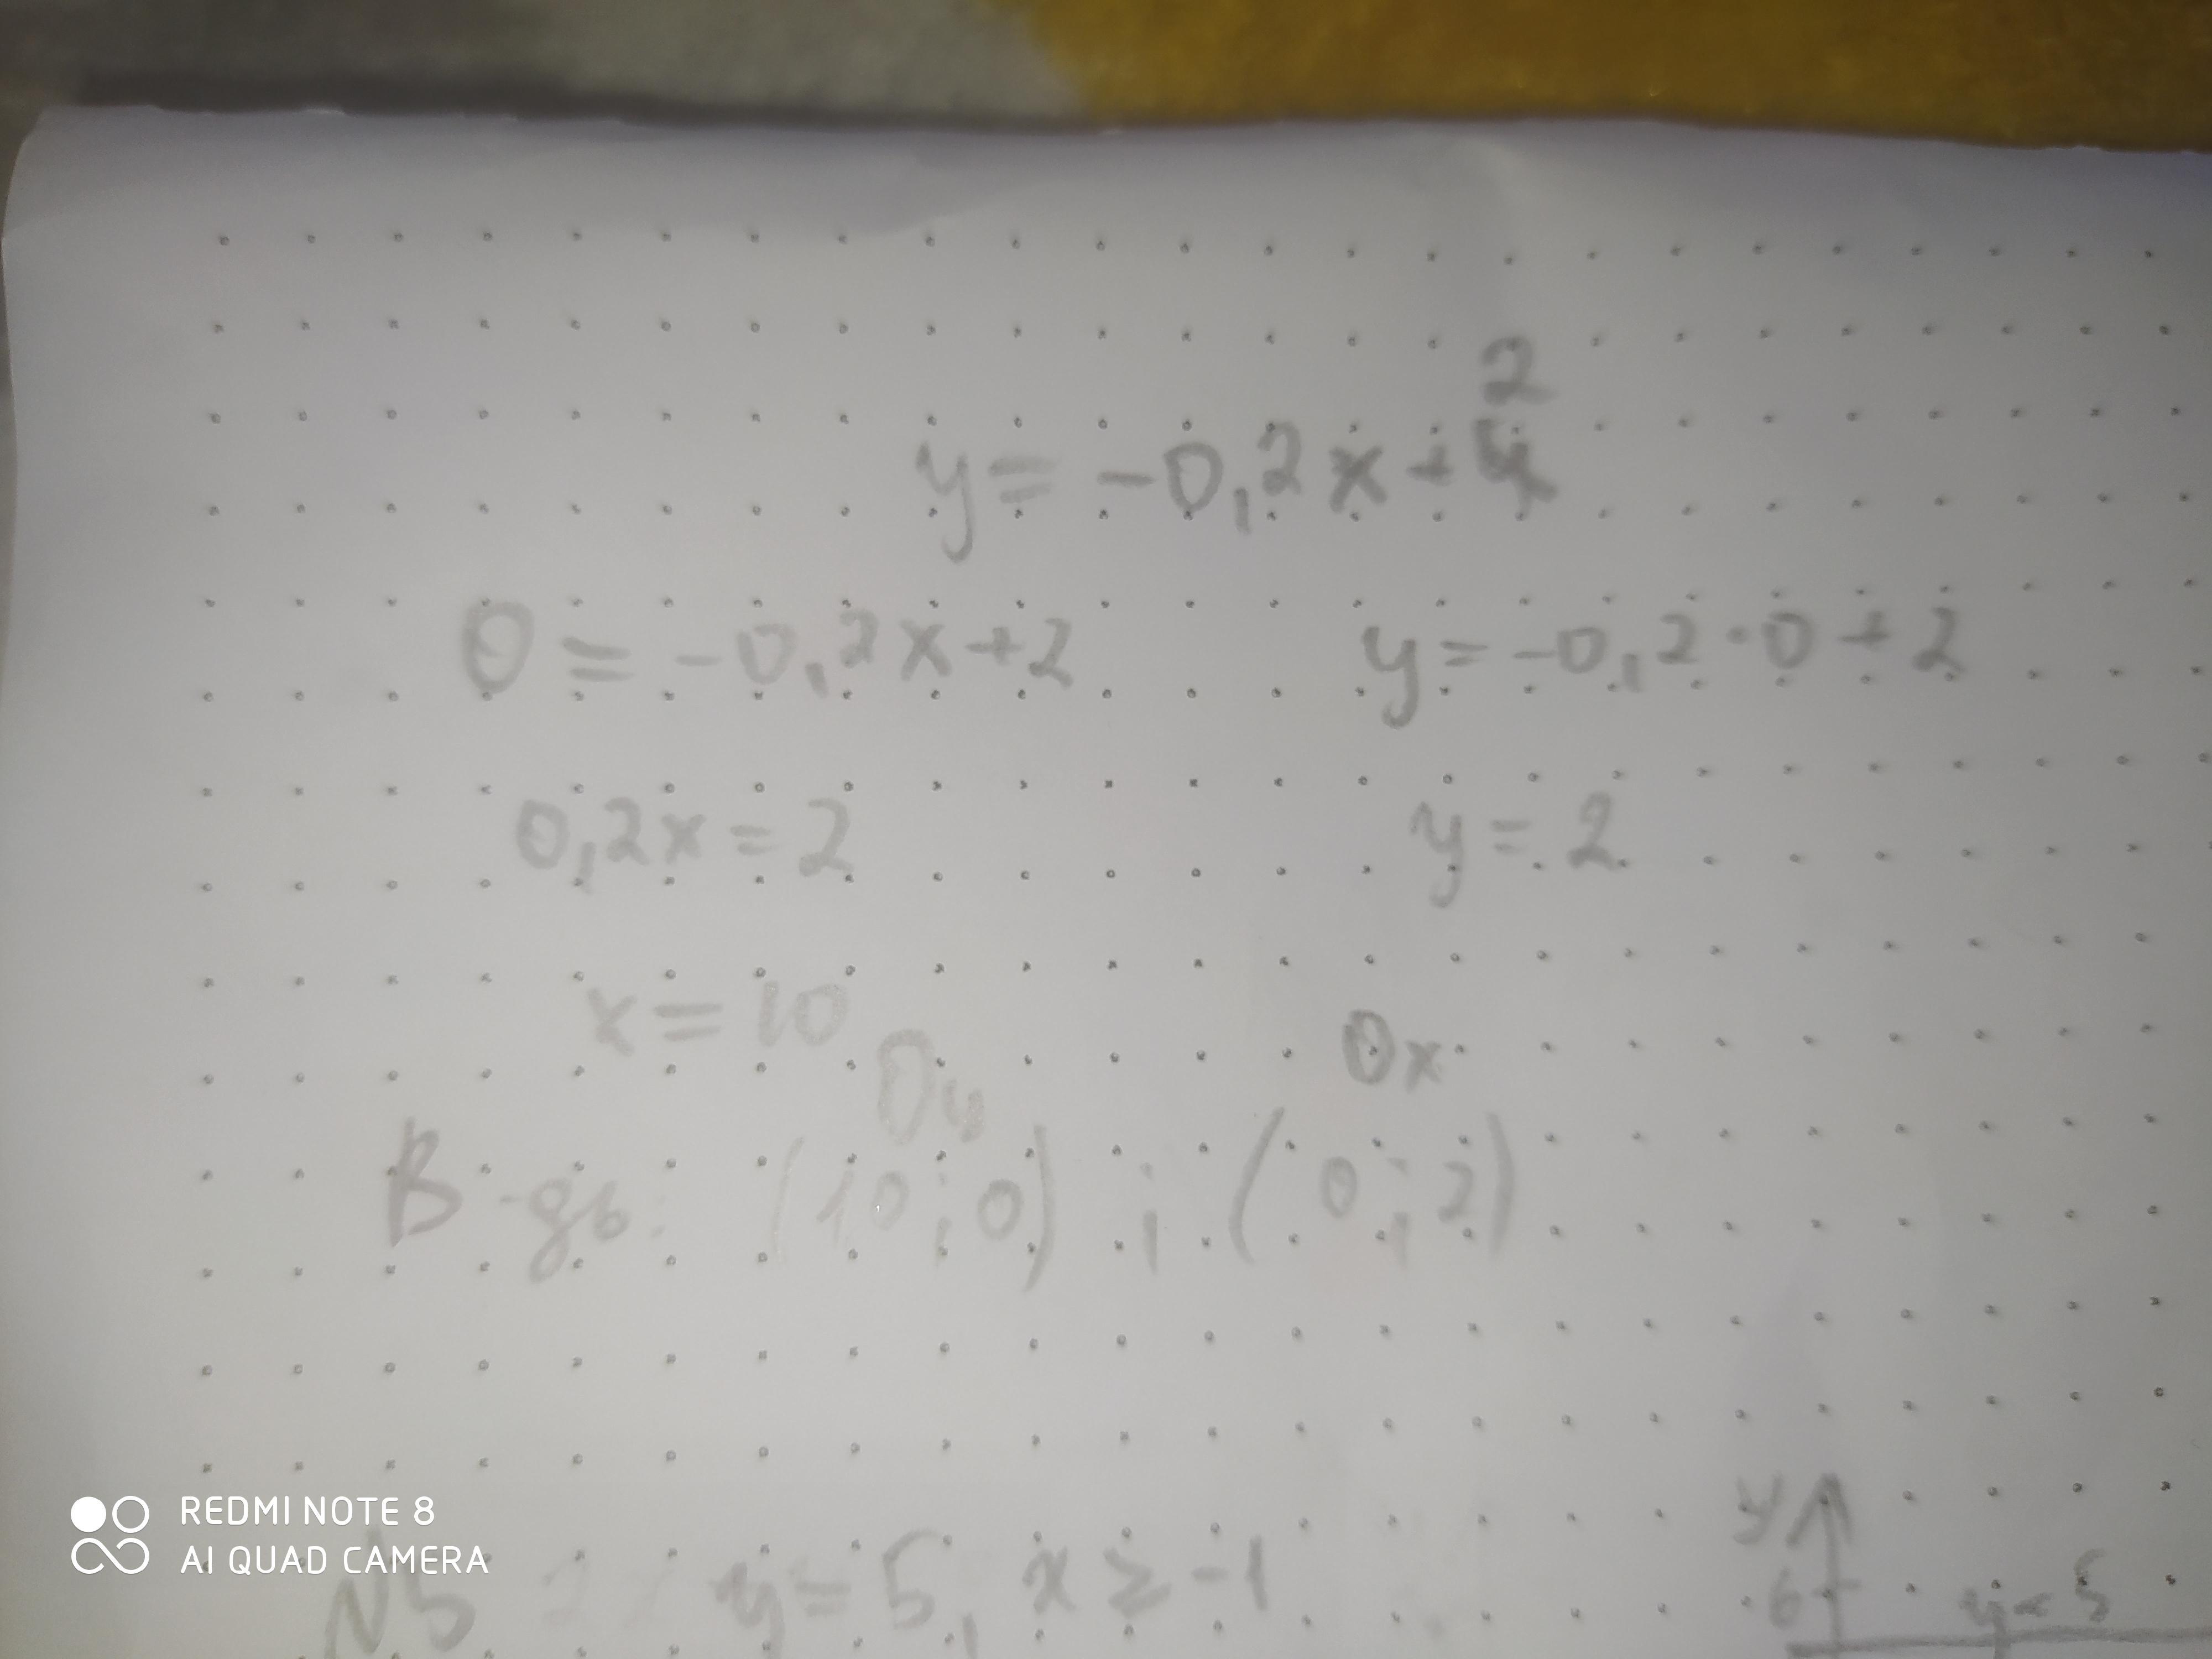 2
y = -0,2x + 4
0 = -0,2x + 2 y = -0,2·0 + 2
0,2x = 2 y = 2
x = 10
Oy Ox
В-дь: (10; 0) ; (0; 2)
REDMI NOTE 8
AI QUAD CAMERA
N5 y = 5, x ≥ -1
y
6
y = 5